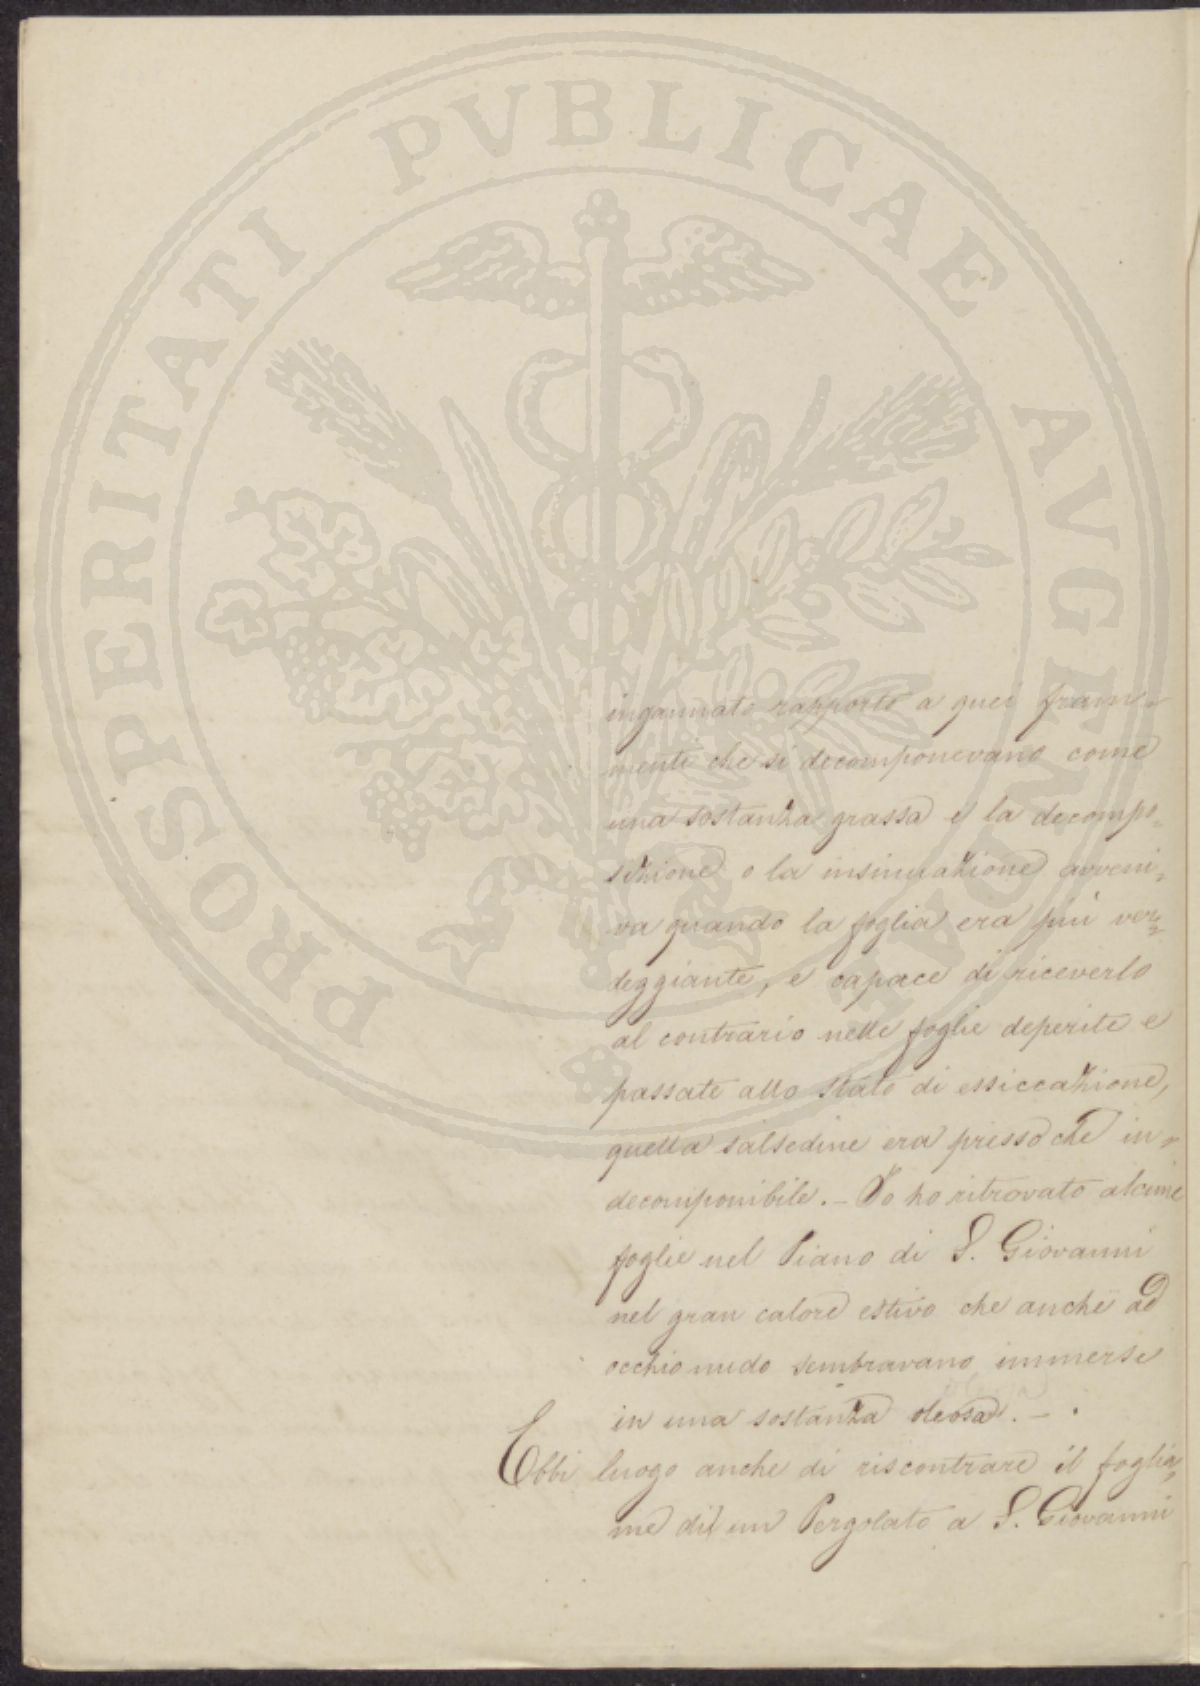 PROSPERITATI PVBLICAE AVGENDAE
ingannato rapporto a quei fram=
menti che si decomponevano come
una sostanza grassa e la decompo=
sizione o la insinuazione avveni=
va quando la foglia era più ver=
deggiante, e capace di riceverlo
al contrario nelle foglie deperite e
passate allo stato di essiccazione,
quella salsedine era pressoche in=
decomponibile. – Io ho ritrovato alcune
foglie nel Piano di S. Giovanni
nel gran calore estivo che anche ad
occhio nudo sembravano immerse
in una sostanza oleosa. –
Ebbi luogo anche di riscontrare il foglia=
me di un Pergolato a S. Giovanni